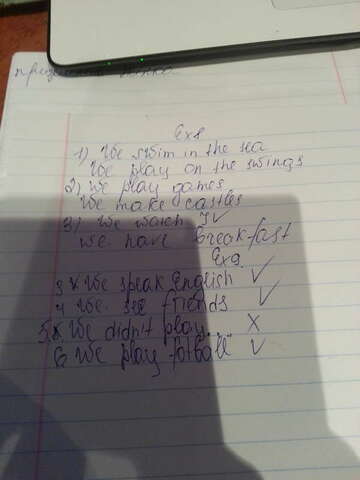 Ex 8
1) We swim in the sea
We play on the swings
2) We play games
We make castles
3) We watch TV
We have breakfast
Ex 9
3 We speak English ✓
4 We see friends ✓
5. We didn't play... ✗
6 We play fotball ✓